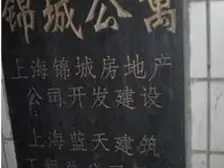 锦城公寓
上海锦城房地产
公司开发建设
上海蓝天建筑